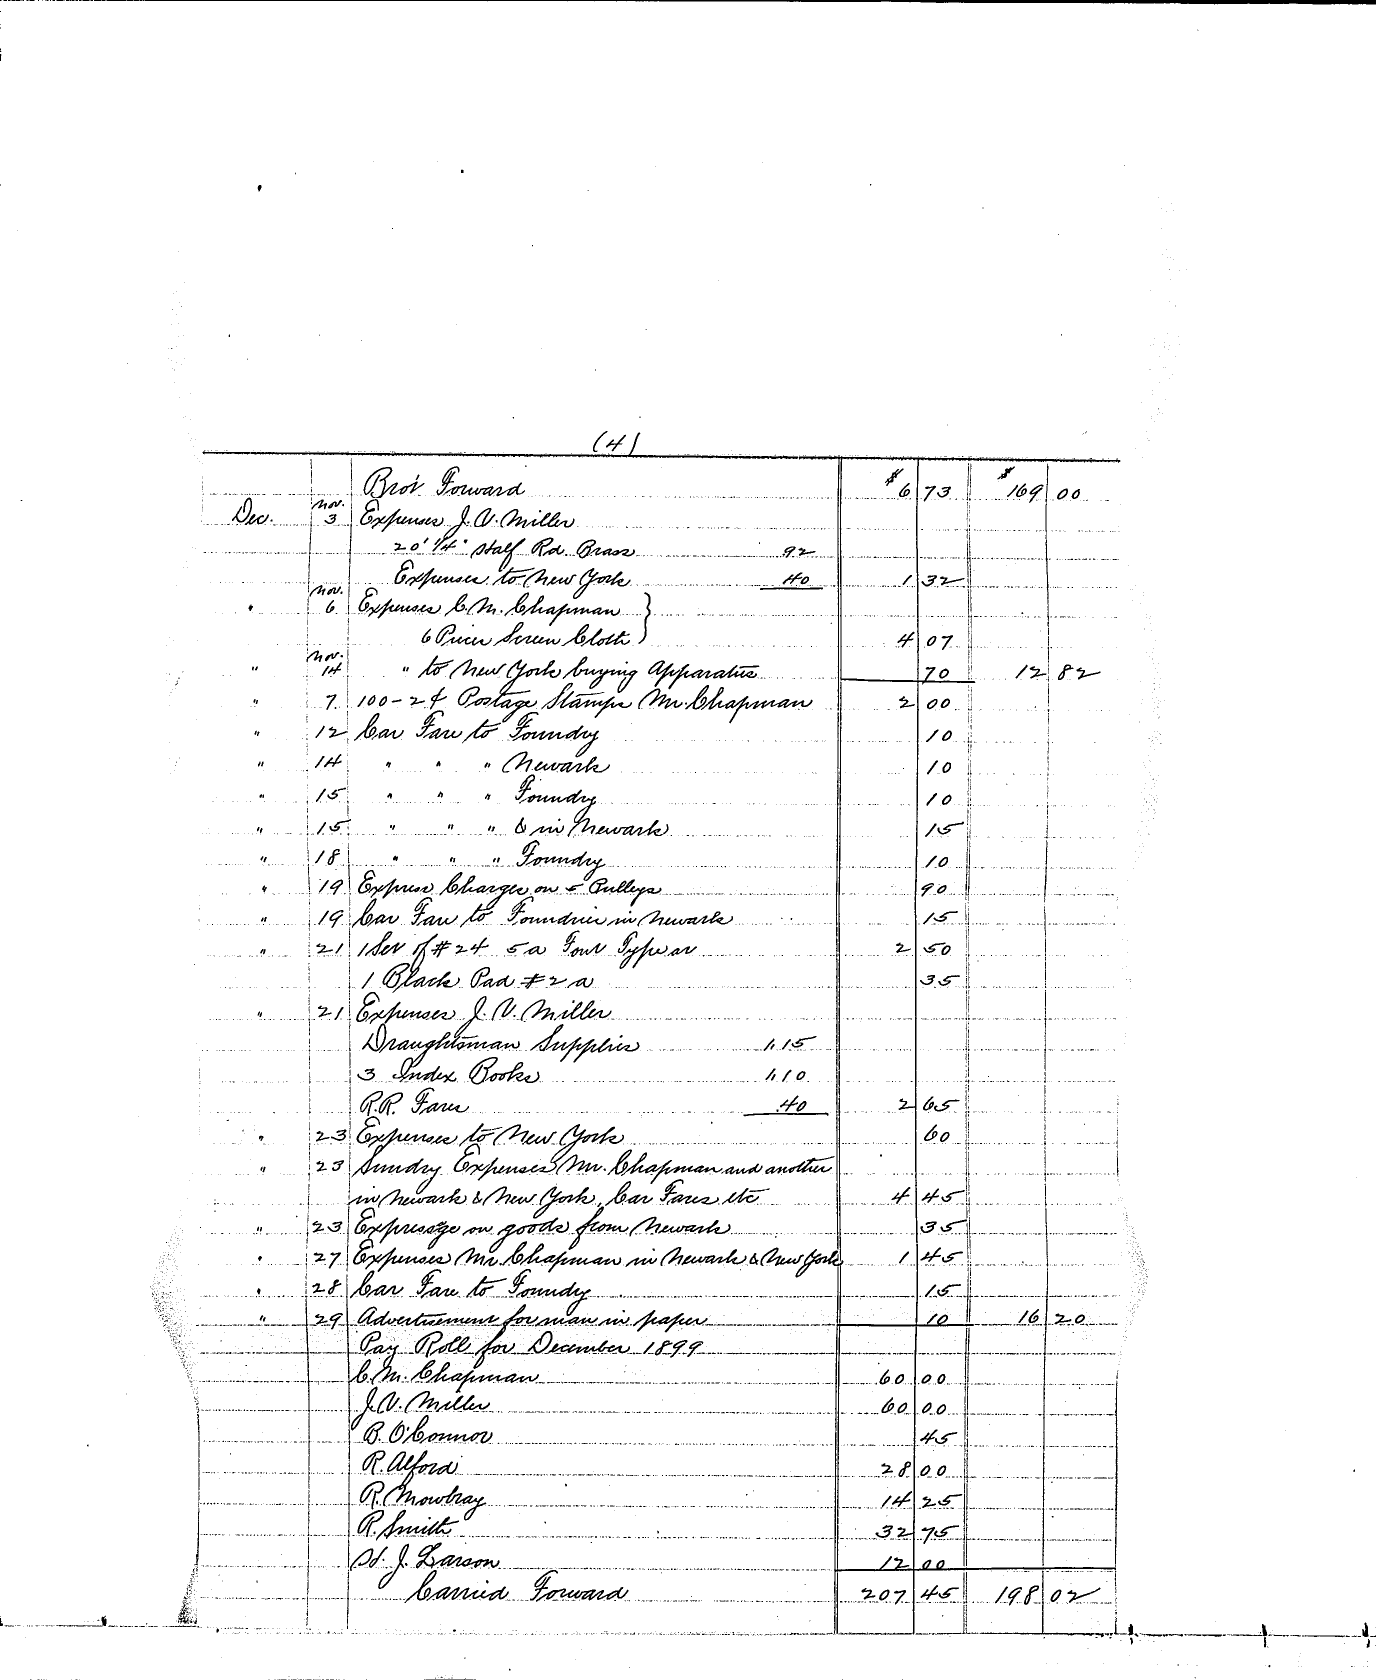 (4)
Bro't Forward $6 73 $169 00
Dec. Nov. 3 Expenses J. V. Miller
20' 1/4" Half Rd. Brass 92
Expenses to New York 40 1 32
" Nov. 6 Expenses C. M. Chapman }
6 Pieces Screen Cloth } 4 07
" Nov. 14 " to New York buying Apparatus 70 12 82
" 7 100-2¢ Postage Stamps Mr. Chapman 2 00
" 12 Car Fare to Foundry 10
" 14 " " " Newark 10
" 15 " " " Foundry 10
" 15 " " " & in Newark 15
" 18 " " " Foundry 10
" 19 Express Charges on 5 Pulleys 90
" 19 Car Fare to Foundries in Newark 15
" 21 1 Set of #24 5a Font Type 2 50
1 Black Pad #2 a 35
" 21 Expenses J. V. Miller
Draughtsman Supplies 1.15
3 Index Books 1.10
R.R. Fares .40 2 65
" 23 Expenses to New York 60
" 23 Sundry Expenses Mr. Chapman and another
in Newark & New York, Car Fares etc 4 45
" 23 Expressage on goods from Newark 35
" 27 Expenses Mr. Chapman in Newark & New York 1 45
" 28 Car Fare to Foundry 15
" 29 Advertisement for man in paper 10 16 20
Pay Roll for December 1899
C. M. Chapman 60 00
J. V. Miller 60 00
B. O'Connor 45
R. Alford 28 00
R. Mowbray 14 25
R. Smith 32 75
H. J. Larson 12 00
Carried Forward 207 45 198 02